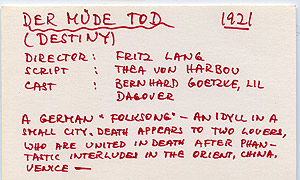 DER MÜDE TOD 1921
(DESTINY)
DIRECTOR : FRITZ LANG
SCRIPT : THEA VON HARBOU
CAST : BERNHARD GOETZKE, LIL
DAGOVER
A GERMAN "FOLKSONG" – AN IDYLL IN A
SMALL CITY. DEATH APPEARS TO TWO LOVERS,
WHO ARE UNITED IN DEATH AFTER PHAN-
TASTIC INTERLUDES IN THE ORIENT, CHINA,
VENICE —